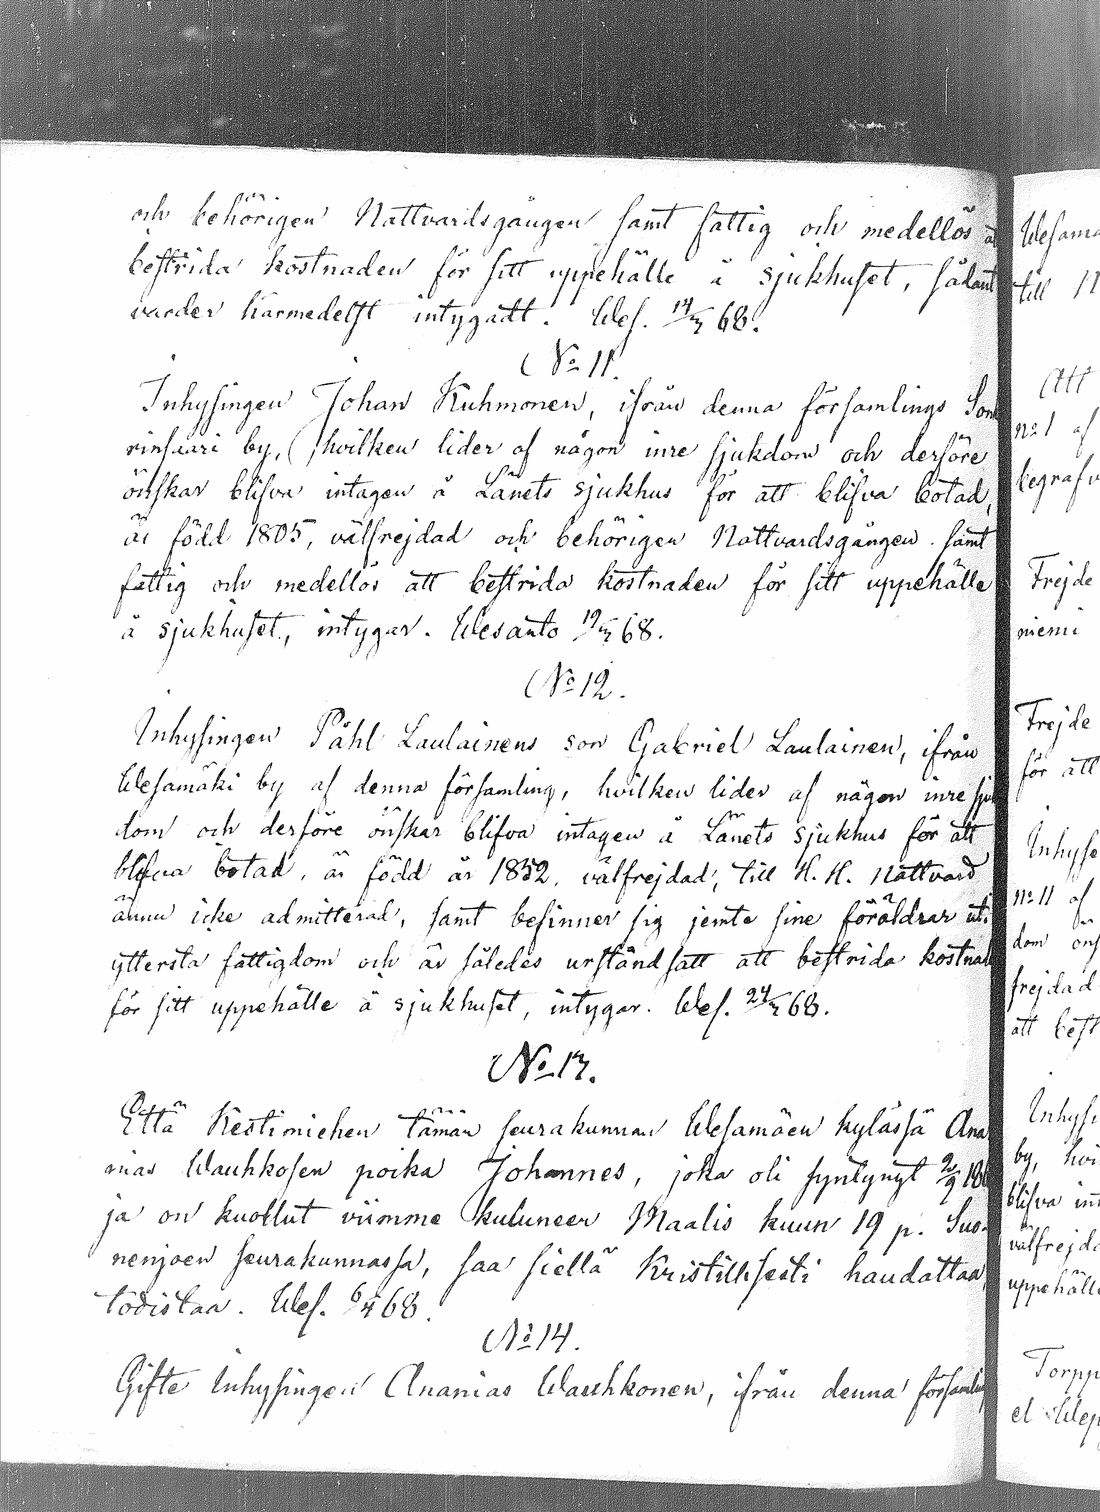 och behörigen Nattvardsgången samt fattig och medellös at
bestrida kostnaden för sitt uppehälle å sjukhuset, sådant
varder härmedelst intygadt. Wes. 14/3 68.
No 11.
Inhysingen Johan Kuhmonen, ifrån denna församlings Son
rinsaari by, (hvilken lider af någon inre sjukdom och derföre
önskar blifva intagen å Länets sjukhus för att blifva botad,
är född 1805, välfrejdad och behörigen Nattvardsgången samt
fattig och medellös att bestrida kostnaden för sitt uppehälle
å sjukhuset, intygar. Wesanto 19/3 68.
No 12.
Inhysingen Påhl Laulainens son Gabriel Laulainen, ifrån
Wesamäki by af denna församling, hvilken lider af någon inre sju
dom och derföre önskar blifva intagen å Länets sjukhus för att
blifva botad, är född år 1852, välfrejdad, till H. H. Nattvard
ännu icke admitterad, samt befinner sig jemte sine föräldrar uti
yttersta fattigdom och är således urståndsatt att bestrida kostnad
för sitt uppehälle å sjukhuset, intygar. Wes. 24/3 68.
No 13.
Että Kestimiehen tämän seurakunnan Wesamäen kylässä Ana
nias Wauhkosen poika Johannes, joka oli syntynyt 2/9 186
ja on kuollut viimme kuluneen Maalis kuun 19 p. Suo-
nenjoen seurakunnassa, saa siellä Kristillisesti haudattaa,
todistaa. Wes. 6/4 68.
No 14.
Gifte Inhysingen Ananias Wauhkonen, ifrån denna församling
Wesama
till
Att
no 1 af
begrafv
Frejde
niemi
Frejde
för att
Inhyse
no 11 af
dom öns
frejdad
att best
Inhysi
by, hvi
blifva int
välfrejda
uppehälle
Torpp
el Wep